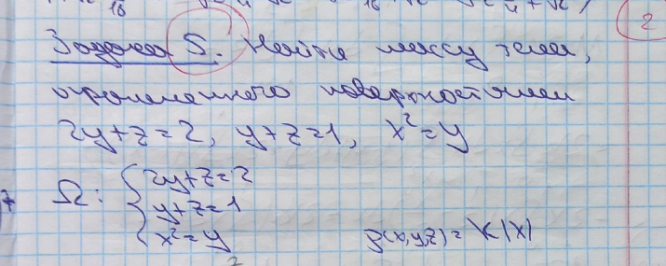 2
Задача 5. Найти массу тела,
ограниченного поверхностями
2y+z=2, y+z=1, x²=y
Ω: { 2y+z=2
y+z=1
x²=y
ρ(x,y,z)=K|x|